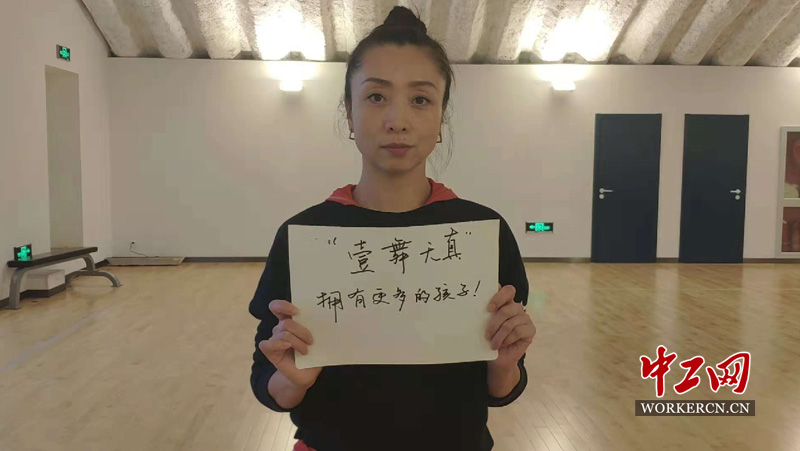 “壹舞天真”
拥有更多的孩子！
中工网
WORKERCN.CN